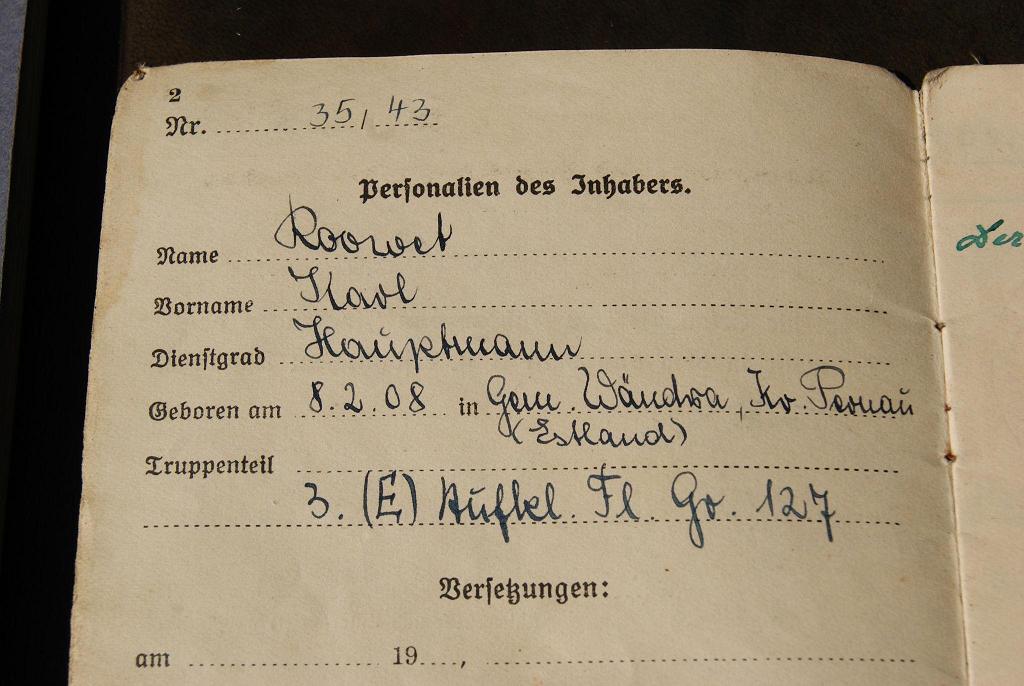 2
Nr. 35/43
Personalien des Inhabers.
Name Roowet
Vorname Karl
Dienstgrad Hauptmann
Geboren am 8.2.08 in Gem. Wändra, Kr. Pernau
(Estland)
Truppenteil
3. (E) Aufkl. Fl. Gr. 127
Versetzungen:
am 19 ,
Der